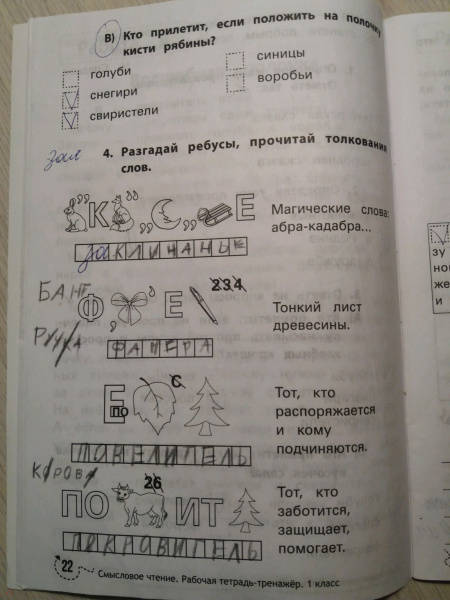 В) Кто прилетит, если положить на полочку
кисти рябины?
голуби
синицы
снегири
воробьи
свиристели
4. Разгадай ребусы, прочитай толкования
слов.
,, К ,, ,, ,, Е
Магические слова:
абра-кадабра...
ЗаКЛИНАНЬЕ
БАНТ
Ф , Е 234
Тонкий лист
древесины.
РУЧКА
ФАНЕРА
Е по С
Тот, кто
распоряжается
и кому
подчиняются.
ПОВЕЛИТЕЛЬ
КОРОВА
ПО 26 ИТ
Тот, кто
заботится,
защищает,
помогает.
ПОКРОВИТЕЛЬ
22
Смысловое чтение. Рабочая тетрадь-тренажёр. 1 класс
зу
но
же
и